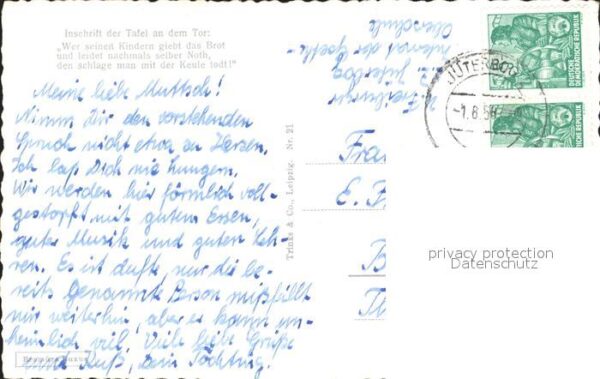 Inschrift der Tafel an dem Tor:
„Wer seinen Kindern giebt das Brot
und leidet nachmals selber Noth,
den schlage man mit der Keule todt!"
Meine liebe Muttsch!
Nimm Dir den vorstehenden
Spruch nicht etwa zu Herzen.
Ich laß Dich nie hungern.
Wir werden hier förmlich voll-
gestopft mit gutem Essen,
guter Musik und guten Leh-
ren. Es ist dufte, nur die be-
reits genannte Person mißfällt
mir weiterhin, aber es kann un-
heimlich viel. Viele liebe Grüße
und Kuß, Dein Töchting.
Trinks & Co., Leipzig. Nr. 21
z. Z. Jüterbog
Internat der Goethe-
Oberschule
Fra
E. F
B
Th
JÜTERBOG
-1.8.56
DEUTSCHE
DEMOKRATISCHE REPUBLIK
privacy protection
Datenschutz